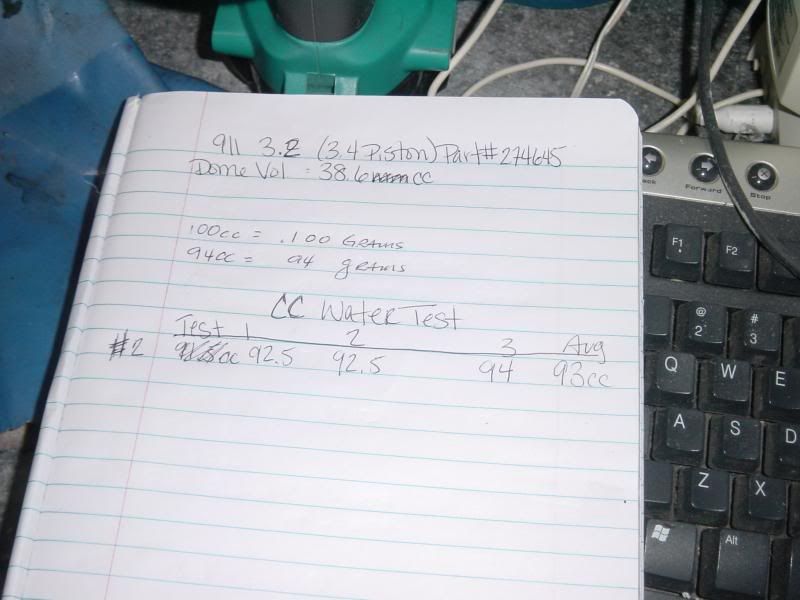 911 3.2 (3.4 Piston) Part# 274645
Dome Vol : 38.6 cc
.100cc = .100 Grams
94cc = 94 grams
CC Water Test
Test 1 2 3 Avg
#2 92.5 92.5 94 93cc
Back Forward Stop
F1 F2
@ 2 # 3
Q W E
A S D
Z X
Alt